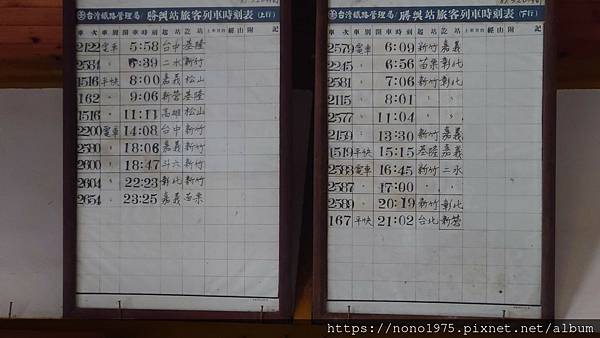 台灣鐵路管理局 勝興站旅客列車時刻表 (上行)
車次 車別 開車時刻 起站 訖站 經由 附記
2122 電車 5:58 台中 基隆
2581 〃 7:39 二水 新竹
1516 平快 8:00 嘉義 松山
162 〃 9:06 新營 基隆
1516 〃 11:11 高雄 松山
2200 電車 14:08 台中 新竹
2580 〃 18:06 嘉義 新竹
2600 〃 18:47 斗六 新竹
2604 〃 22:23 彰化 新竹
2654 〃 23:25 嘉義 苗栗
台灣鐵路管理局 勝興站旅客列車時刻表 (下行)
車次 車別 開車時刻 起站 訖站 經由 附記
2579 電車 6:09 新竹 嘉義
2245 〃 6:56 苗栗 彰化
2581 〃 7:06 新竹 彰化
2115 〃 8:01 〃 〃
2577 〃 11:04 〃 〃
2159 〃 13:30 新竹 嘉義
1519 平快 15:15 基隆 嘉義
2583 電車 16:45 新竹 二水
2587 〃 17:00 〃 〃
2589 〃 20:19 新竹 彰化
167 平快 21:02 台北 新營
https://nono1975.pixnet.net/album